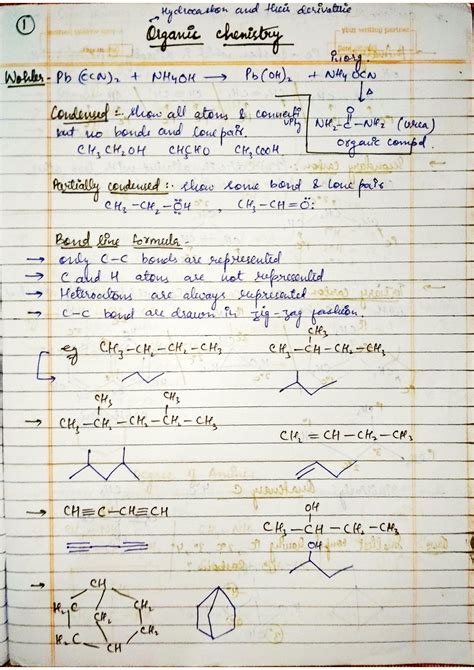 Hydrocarbon and their derivative
① Organic chemistry
Inorg.
Wohler- Pb(CN)₂ + NH₄OH → Pb(OH)₂ + NH₄OCN
Δ
Condensed :- show all atoms &
but no bonds and lone pair
CH₃CH₂OH CH₃CHO CH₃COOH
O
NH₂-C-NH₂ (urea)
organic compd.
Partially condensed :- show some bond & lone pair
CH₃-CH₂-ÖH , CH₃-CH=Ö:
Bond line formula -
→ only C-C bonds are represented
→ C and H atoms are not represented
→ Heteroatoms are always represented
→ C-C bond are drawn in zig-zag fashion.
eg CH₃-CH₂-CH₂-CH₃
CH₃
CH₃-CH-CH₂-CH₃
CH₃ CH₃
→ CH₃-CH-CH₂-CH-CH₃
CH₂=CH-CH₂-CH₃
→ CH≡C-CH≡CH
OH
CH₃-CH-CH₂-CH₃
OH
→ CH
H₂C CH₂ CH₂
H₂C CH₂
CH